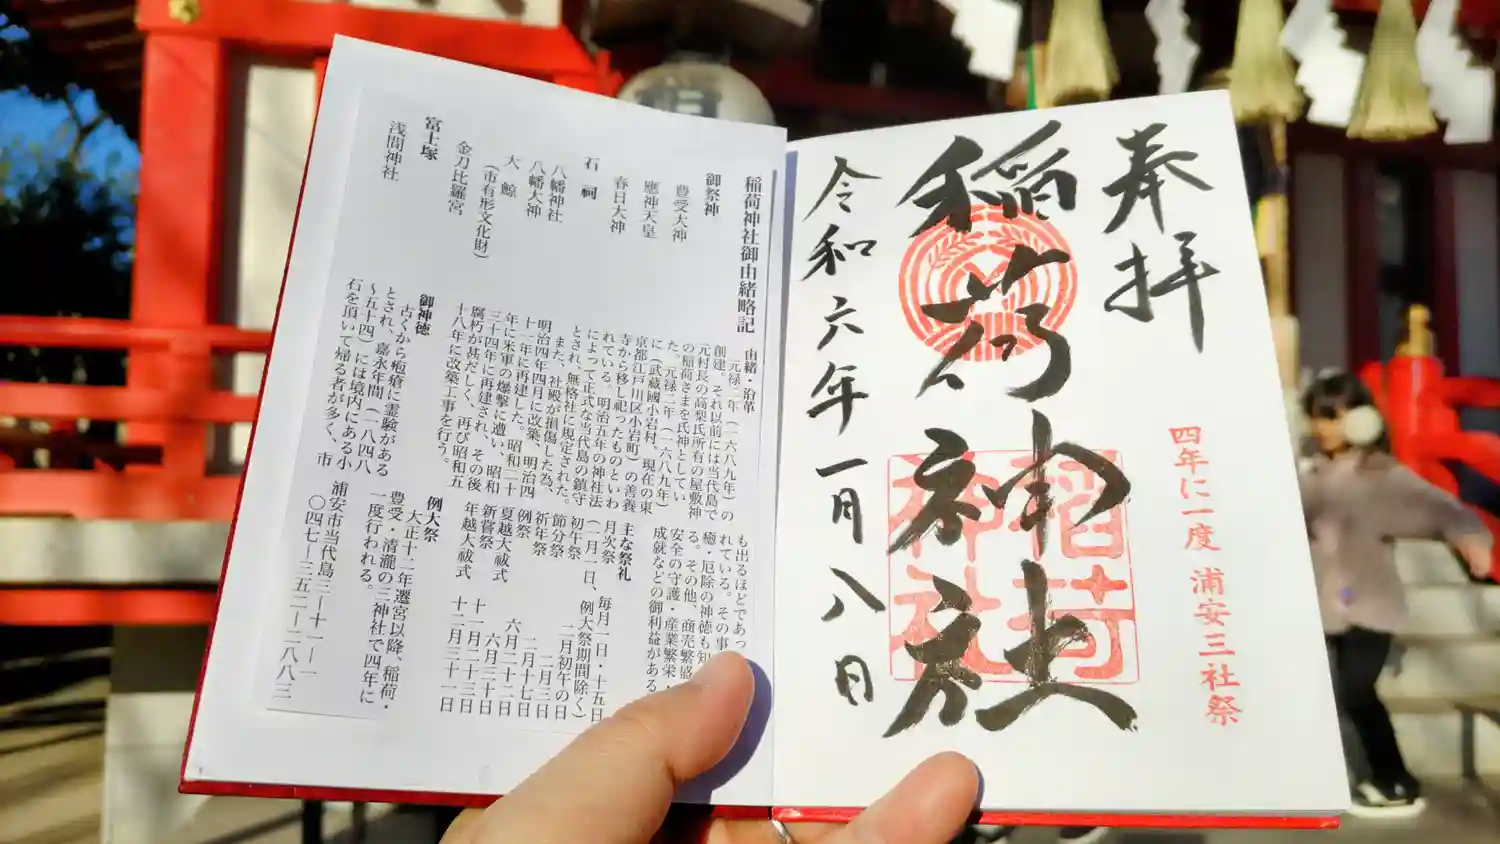 奉拝
稲荷神社
令和六年一月八日
四年に一度 浦安三社祭
稲荷神社
稲荷神社御由緒略記
御祭神
豊受大神
應神天皇
春日大神
石 祠
八幡神社
八幡大神
大 鯨
(市有形文化財)
金刀比羅宮
富士塚
浅間神社
由緒・沿革
元禄二年(一六八九年)の
創建、それ以前には当代島で
元村長の高梨氏所有の屋敷神
の稲荷さまを氏神としてい
た。元禄二年(一六八九年)
に(武蔵國小岩村、現在の東
京都江戸川区小岩町)の善養
寺から移し祀ったものといわ
れている。明治五年の神社法
によって正式な当代島の鎮守
とされ、無格社に規定された。
また、社殿が損傷した為、
明治四年四月に改築、明治四
十一年に再建した。昭和二十
年に米軍の爆撃に遭い、昭和
三十四年に再建され、その後
腐朽が甚だしく、再び昭和五
十八年に改築工事を行う。
御神徳
古くから疱瘡に霊験がある
とされ、嘉永年間(一八四八
~五十四)には境内にある小
石を頂いて帰る者が多く、市
も出るほどであっ
れている。その事
癒・厄除の神徳も知
る。その他、商売繁盛
安全の守護・産業繁栄・
成就などの御利益がある
主な祭礼
月次祭 毎月一日・十五日
(一月一日、例大祭期間除く)
初午祭 二月初午の日
節分祭 二月三日
祈年祭 二月十七日
例祭 六月二十二日
夏越大祓式 六月三十日
新嘗祭 十一月二十三日
年越大祓式 十二月三十一日
例大祭
大正十二年遷宮以降、稲荷・
豊受・清瀧の三神社で四年に
一度行われる。
浦安市当代島三ー十一ー一
〇四七ー三五二ー二八八三